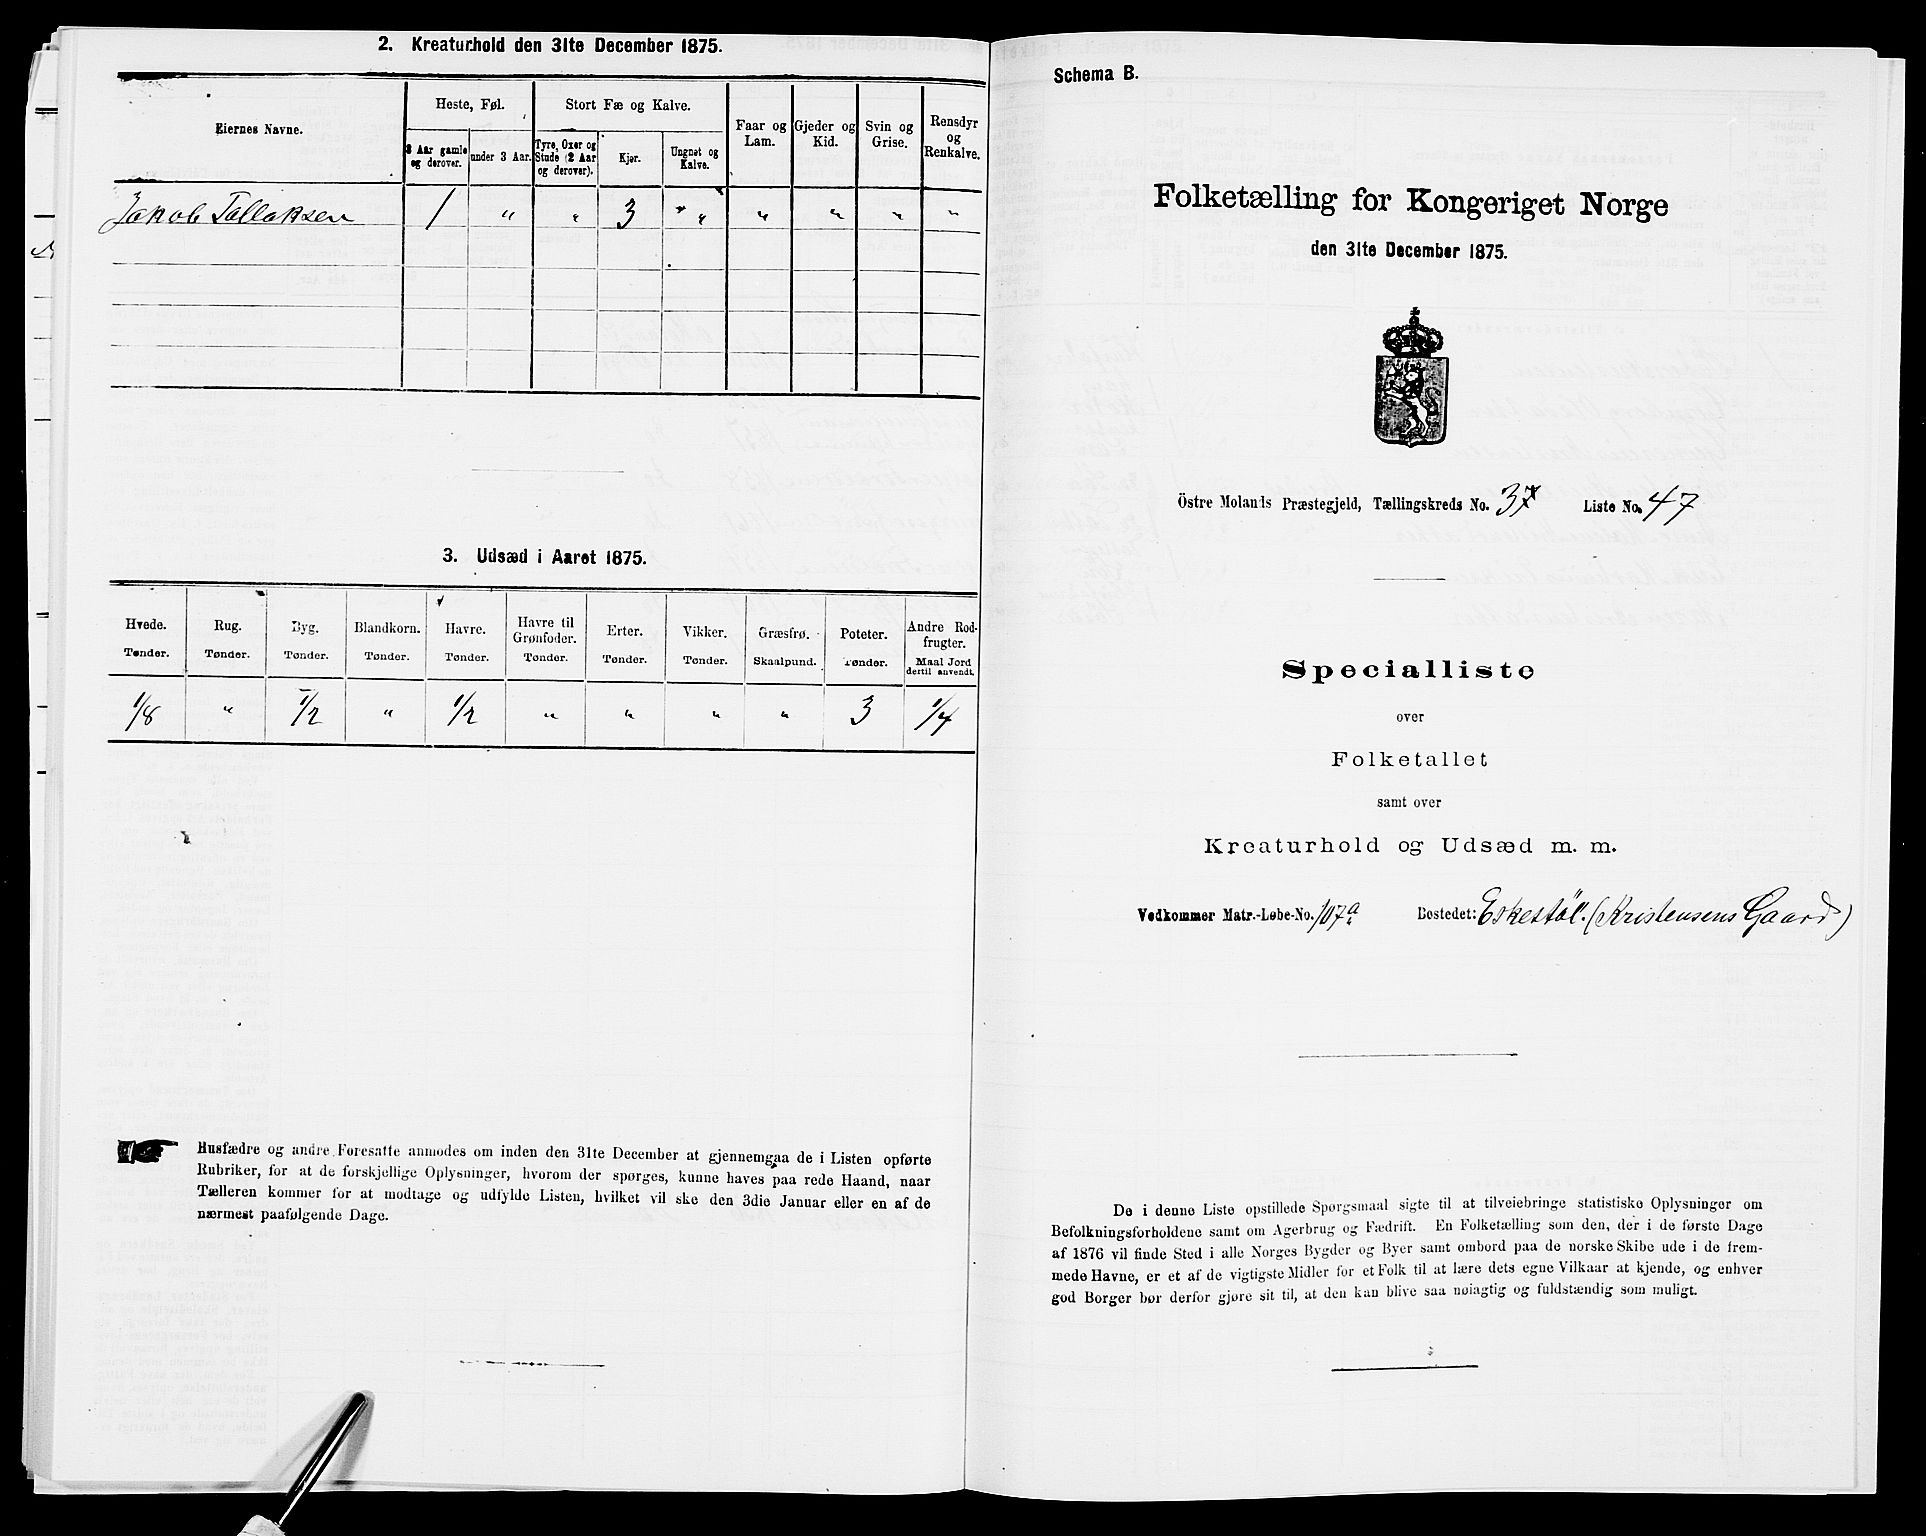 2. Kreaturhold den 31te December 1875.
Eiernes Navne.
Heste, Føl.
Stort Fæ og Kalve.
Faar og Lam.
Gjeder og Kid.
Svin og Grise.
Rensdyr og Renkalve.
3 Aar gamle og derover.
under 3 Aar.
Tyre, Oxer og Stude (2 Aar og derover).
Kjør.
Ungnøt og Kalve.
Jakob Tallaksen 1 " " 3 " " " " " "
3. Udsæd i Aaret 1875.
Hvede. Rug. Byg. Blandkorn. Havre. Havre til Grønfoder. Erter. Vikker. Græsfrø. Poteter. Andre Rodfrugter.
Tønder. Tønder. Tønder. Tønder. Tønder. Tønder. Tønder. Tønder. Skaalpund. Tønder. Maal Jord dertil anvendt.
1/8 " 1/2 " 1/2 " " " " 3 1/4
Husfædre og andre Foresatte anmodes om inden den 31te December at gjennemgaa de i Listen opførte
Rubriker, for at de forskjellige Oplysninger, hvorom der spørges, kunne haves paa rede Haand, naar
Tælleren kommer for at modtage og udfylde Listen, hvilket vil ske den 3die Januar eller en af de
nærmest paafølgende Dage.
Schema B.
Folketælling for Kongeriget Norge
den 31te December 1875.
Östre Molands Præstegjeld, Tællingskreds No. 3 Liste No. 47
Specialliste
over
Folketallet
samt over
Kreaturhold og Udsæd m. m.
Vedkommer Matr.-Løbe-No. 107a Bostedet: Eskestöl. (Kristensens Gaard)
De i denne Liste opstillede Spørgsmaal sigte til at tilveiebringe statistiske Oplysninger om
Befolkningsforholdene samt om Agerbrug og Fædrift. En Folketælling som den, der i de første Dage
af 1876 vil finde Sted i alle Norges Bygder og Byer samt ombord paa de norske Skibe ude i de frem-
mede Havne, er et af de vigtigste Midler for et Folk til at lære dets egne Vilkaar at kjende, og enhver
god Borger bør derfor gjøre sit til, at den kan blive saa nøiagtig og fuldstændig som muligt.